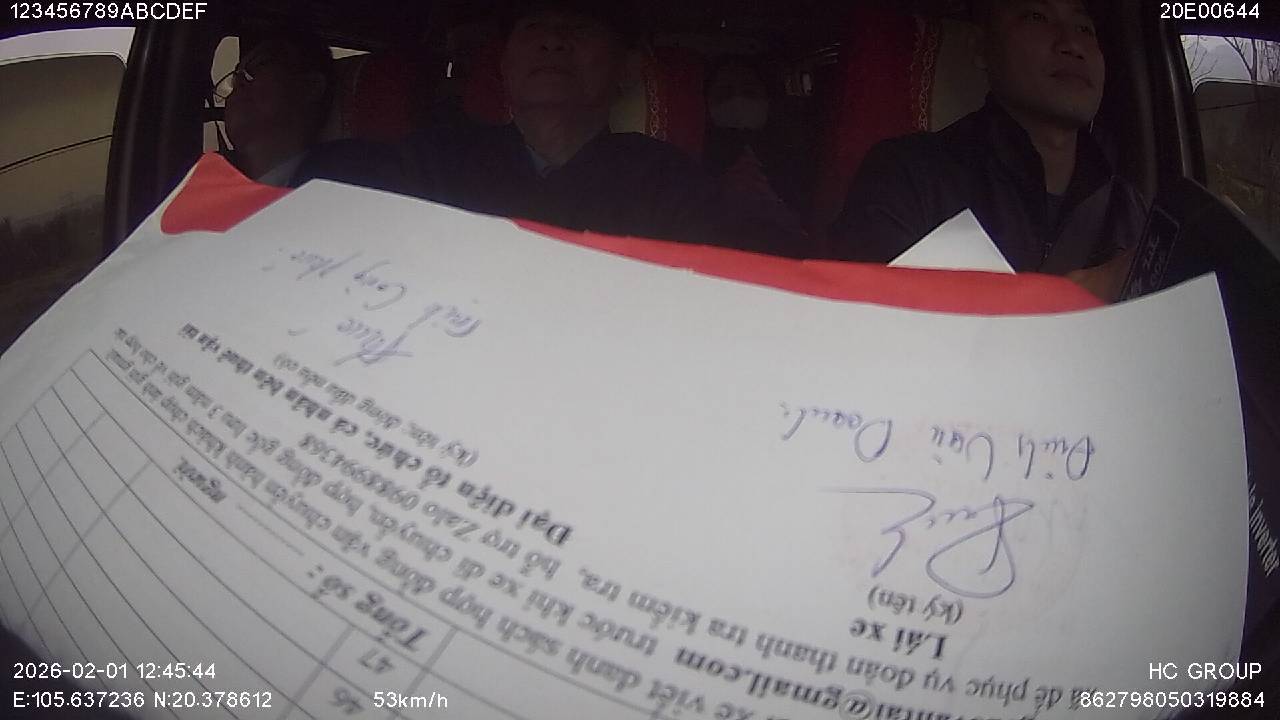 123456789ABCDEF
20E00644
46
47
Tổng số:
người.
xe viết danh sách hợp đồng vận chuyển hành khách chụp ảnh gửi gmail
@gmail.com trước khi xe di chuyển, hợp đồng gốc lưu 3 năm gửi về
để phục vụ đoàn thanh tra kiểm tra, hỗ trợ Zalo 0988994368
Lái xe
(ký tên)
Đại diện tổ chức, cá nhân bên thuê vận tải
(Ký tên, đóng dấu nếu có)
Đinh Văn Doanh
Phúc
Đinh Công Phúc
Inverter
2026-02-01 12:45:44
E:105.637236 N:20.378612
53km/h
HC GROUP
862798050319884